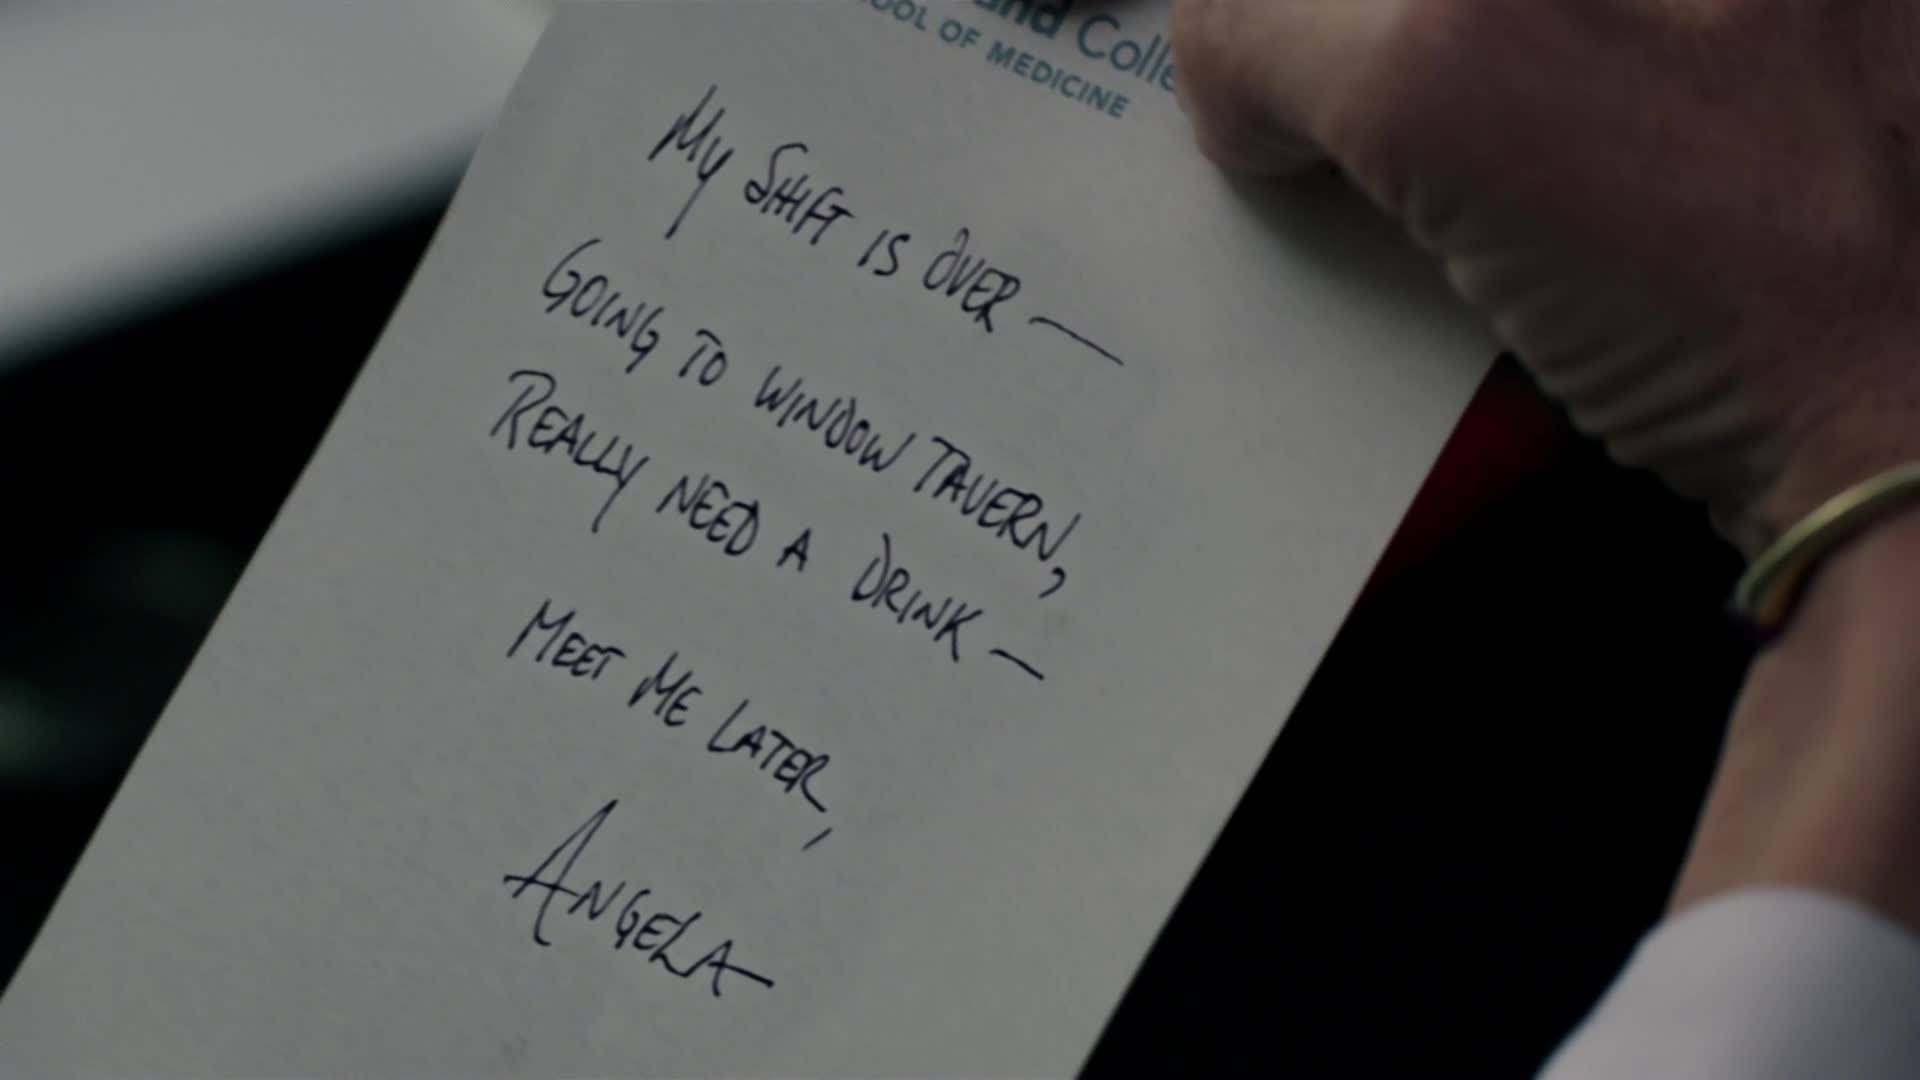 and Colle
OOL OF MEDICINE
My SHIFT IS OVER —
GOING TO WINDOW TAVERN,
REALLY NEED A DRINK —
MEET ME LATER,
ANGELA